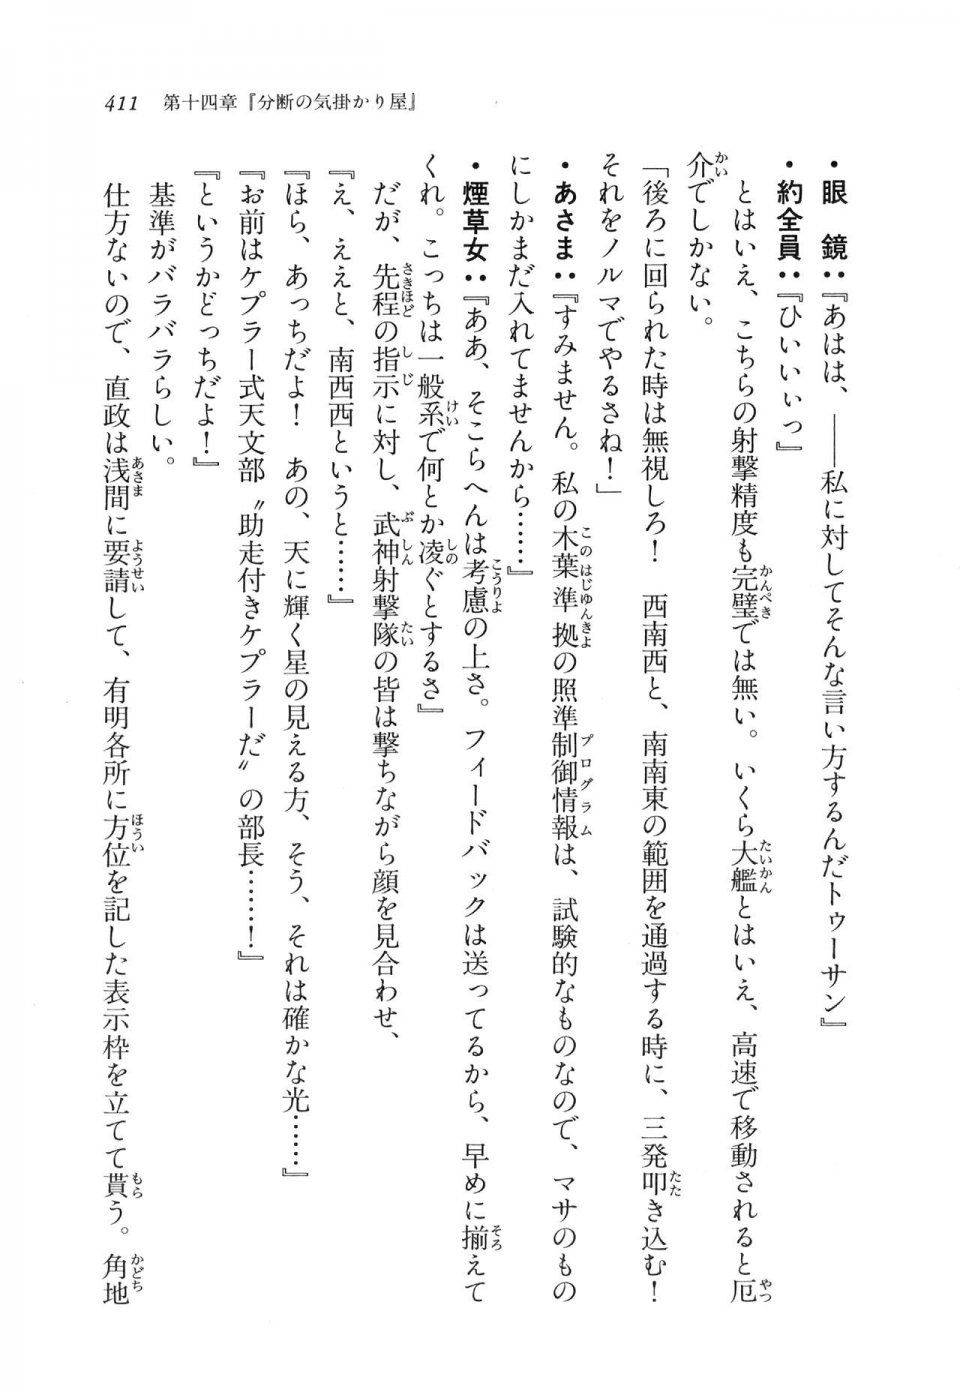 411　第十四章『分断の気掛かり屋』
・眼　鏡：『あはは、――私に対してそんな言い方するんだトゥーサン』
・約全員：『ひいいぃっ』
　とはいえ、こちらの射撃精度も完璧では無い。いくら大艦とはいえ、高速で移動されると厄
介でしかない。
「後ろに回られた時は無視しろ！　西南西と、南南東の範囲を通過する時に、三発叩き込む！
それをノルマでやるさね！」
・あさま：『すみません。私の木葉準拠の照準制御情報は、試験的なものなので、マサのもの
にしかまだ入れてませんから……』
・煙草女：『ああ、そこらへんは考慮の上さ。フィードバックは送ってるから、早めに揃えて
くれ。こっちは一般系で何とか凌ぐとするさ』
　だが、先程の指示に対し、武神射撃隊の皆は撃ちながら顔を見合わせ、
『え、ええと、南西西というと……』
『ほら、あっちだよ！　あの、天に輝く星の見える方、そう、それは確かな光……』
『お前はケプラー式天文部〝助走付きケプラーだ〟の部長……！』
『というかどっちだよ！』
　基準がバラバラらしい。
　仕方ないので、直政は浅間に要請して、有明各所に方位を記した表示枠を立てて貰う。角地